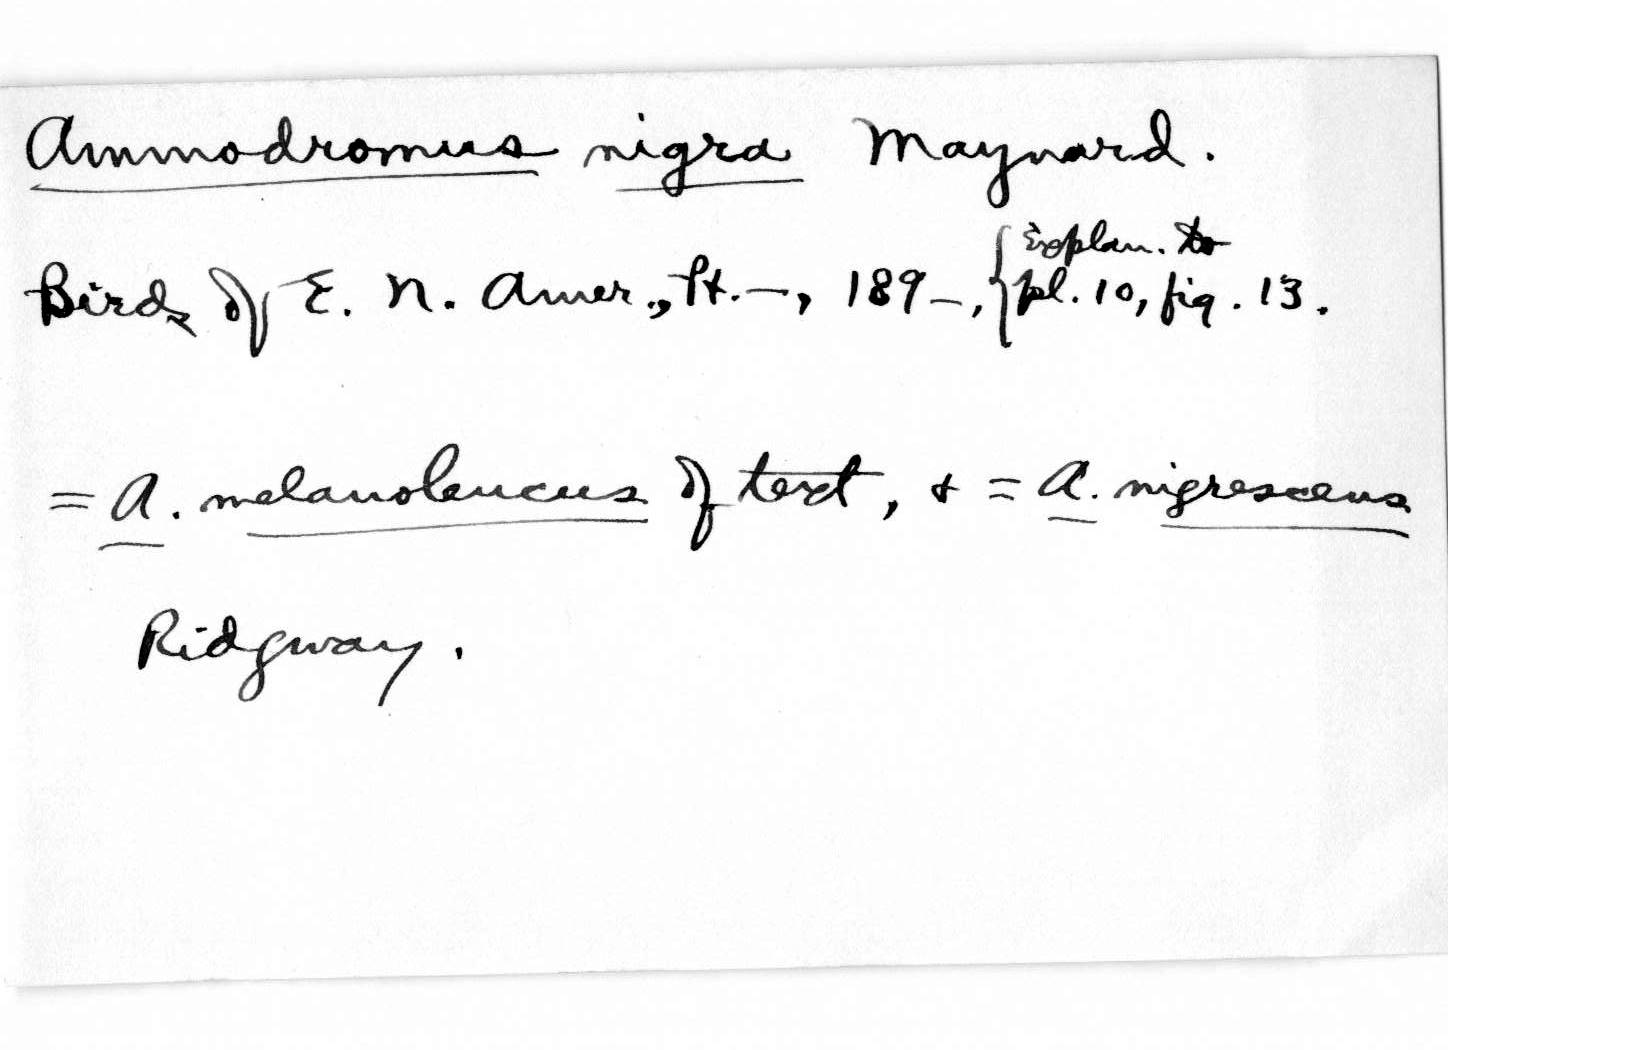 Ammodromus nigra Maynard.
Birds of E. N. Amer., Pt. —, 189–, { Explan. to
pl. 10, fig. 13.
= A. melanoleucus of text, & = A. nigrescens
Ridgway.